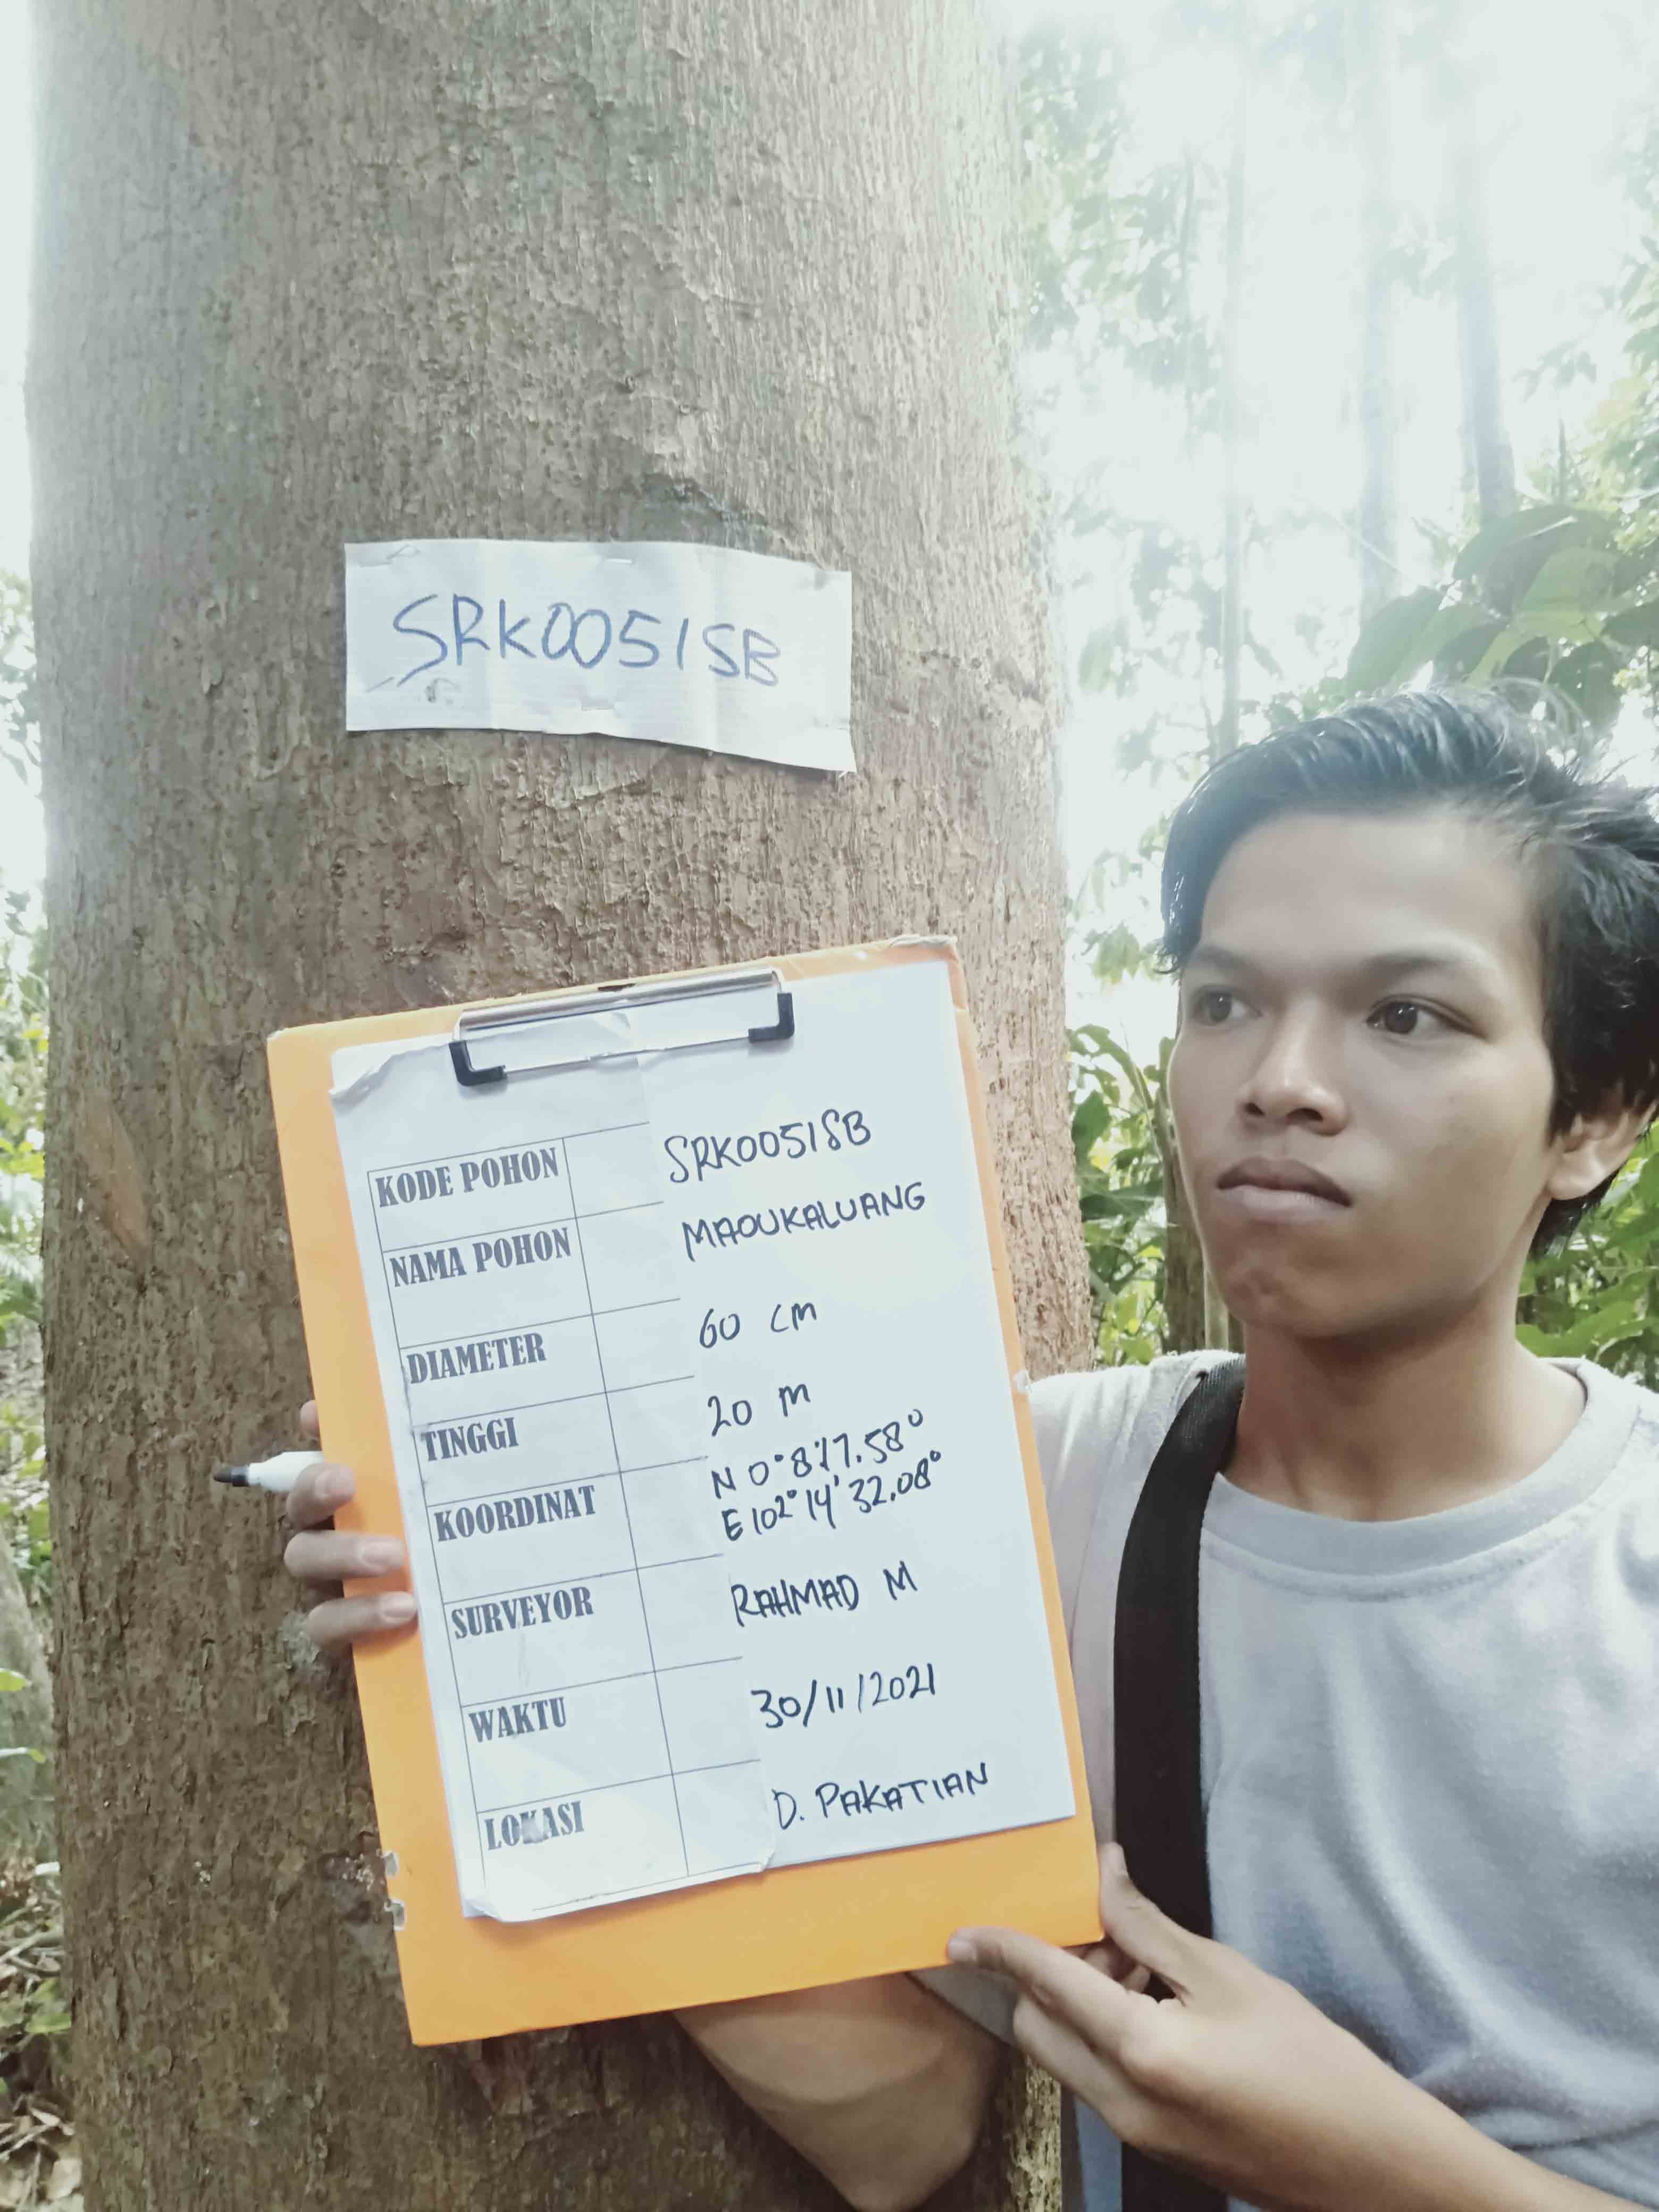 SRK0051SB
KODE POHON SRK0051SB
NAMA POHON MAOUKALUANG
DIAMETER 60 cm
TINGGI 20 m
KOORDINAT N 0°8'17.58°
E 102° 14' 32.08°
SURVEYOR RAHMAD M
WAKTU 30/11/2021
LOKASI D. PAKATIAN